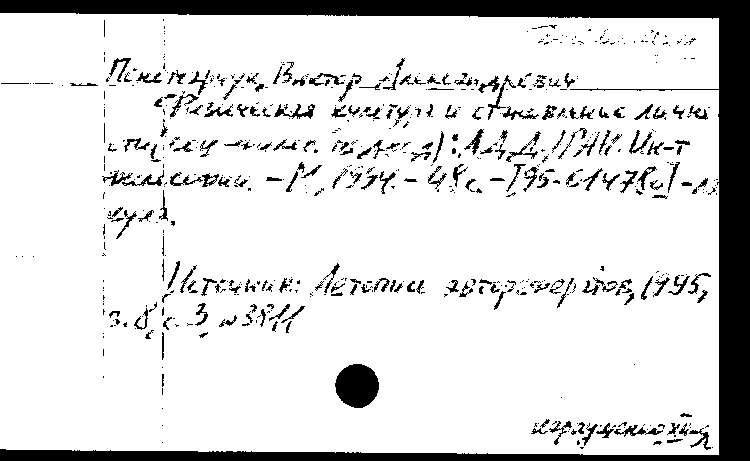 Пономарчук, Виктор Александрович
Физическая культура и становление лично-
сти (соц.-филос. подход): А.Д.Д. / РАН. Ин-т
философии. – М., 1994. – 48 с. – [95-61478а]
Источник: Летопись авторефератов, 1995,
з. 8, с. 3, №3811